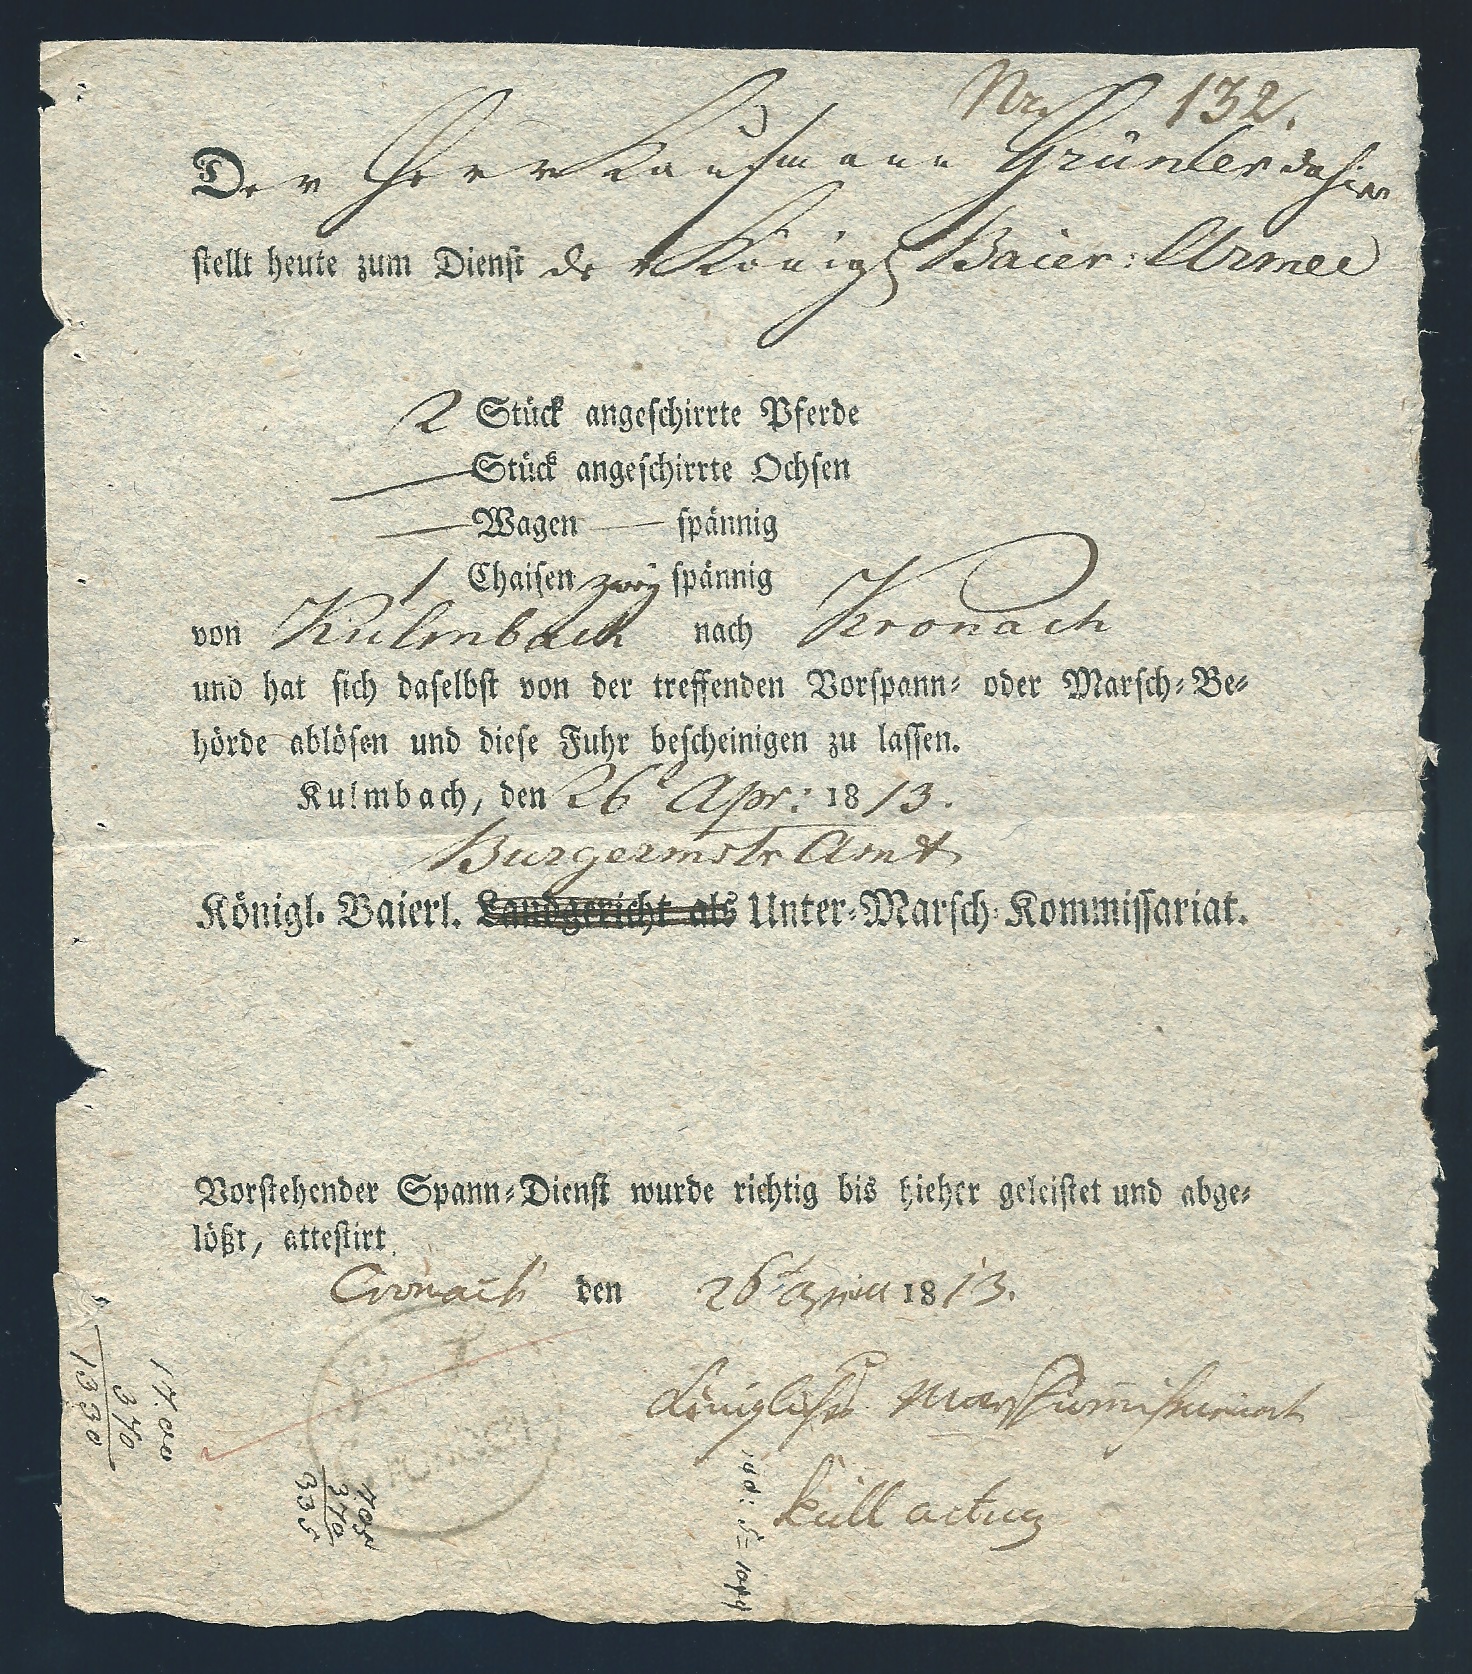 Nro 132.
Der Herr Kaufmann Gründler dahier
stellt heute zum Dienst der Königl Baier: Armee
2 Stück angeschirrte Pferde
— Stück angeschirrte Ochsen
— Wagen — spännig
1 Chaisen zwey spännig
von Kulmbach nach Kronach
und hat sich daselbst von der treffenden Vorspann- oder Marsch-Be-
hörde ablösen und diese Fuhr bescheinigen zu lassen.
Kulmbach, den 26t Apr: 1813.
Burgermstr Amt
Königl. Baierl. Landgericht als Unter-Marsch-Kommissariat.
Vorstehender Spann-Dienst wurde richtig bis hieher geleistet und abge-
lößt, attestirt
Cronach den 26t April 1813.
Königliches Marschkommissariat
actuar
17.00
370
1330
705
370
335